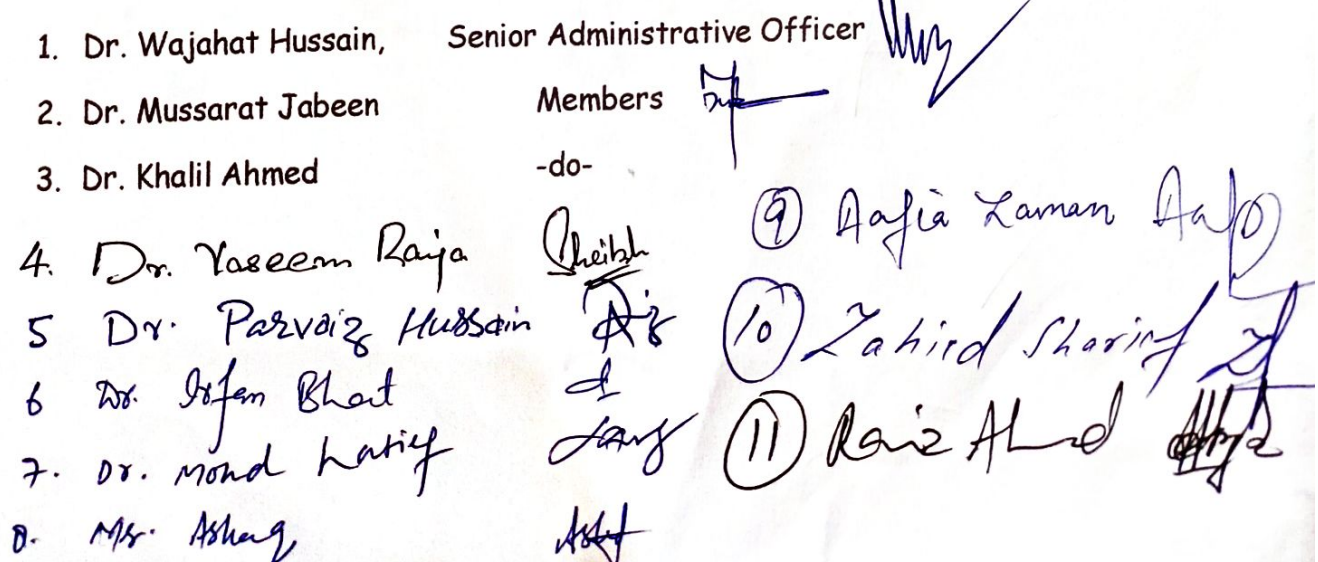 1. Dr. Wajahat Hussain, Senior Administrative Officer
2. Dr. Mussarat Jabeen Members
3. Dr. Khalil Ahmed -do-
4. Dr. Vaseem Raja Sheikh
5 Dr. Parvaiz Hussain
6 Dr. Irfan Bhat
7. Dr. Mohd Latief
8. Mr. Ashaq
9 Aafia Zaman
10 Zahied Sharief
11 Raiz Ahmd